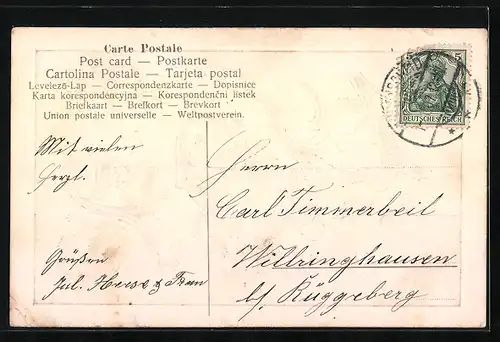 Carte Postale
Post card — Postkarte
Cartolina Postale — Tarjeta postal
Levelező-Lap — Correspondenzkarte — Dopisnice
Karta korespondencyjna — Korespondenční lístek
Briefkaart — Brefkort — Brevkort
Union postale universelle — Weltpostverein.
Mit vielen
herzl.
Grüßen
Jul. & Frau
Herrn
Carl Timmerbeil
Willringhausen
b/ Rüggeberg
5
DEUTSCHES REICH